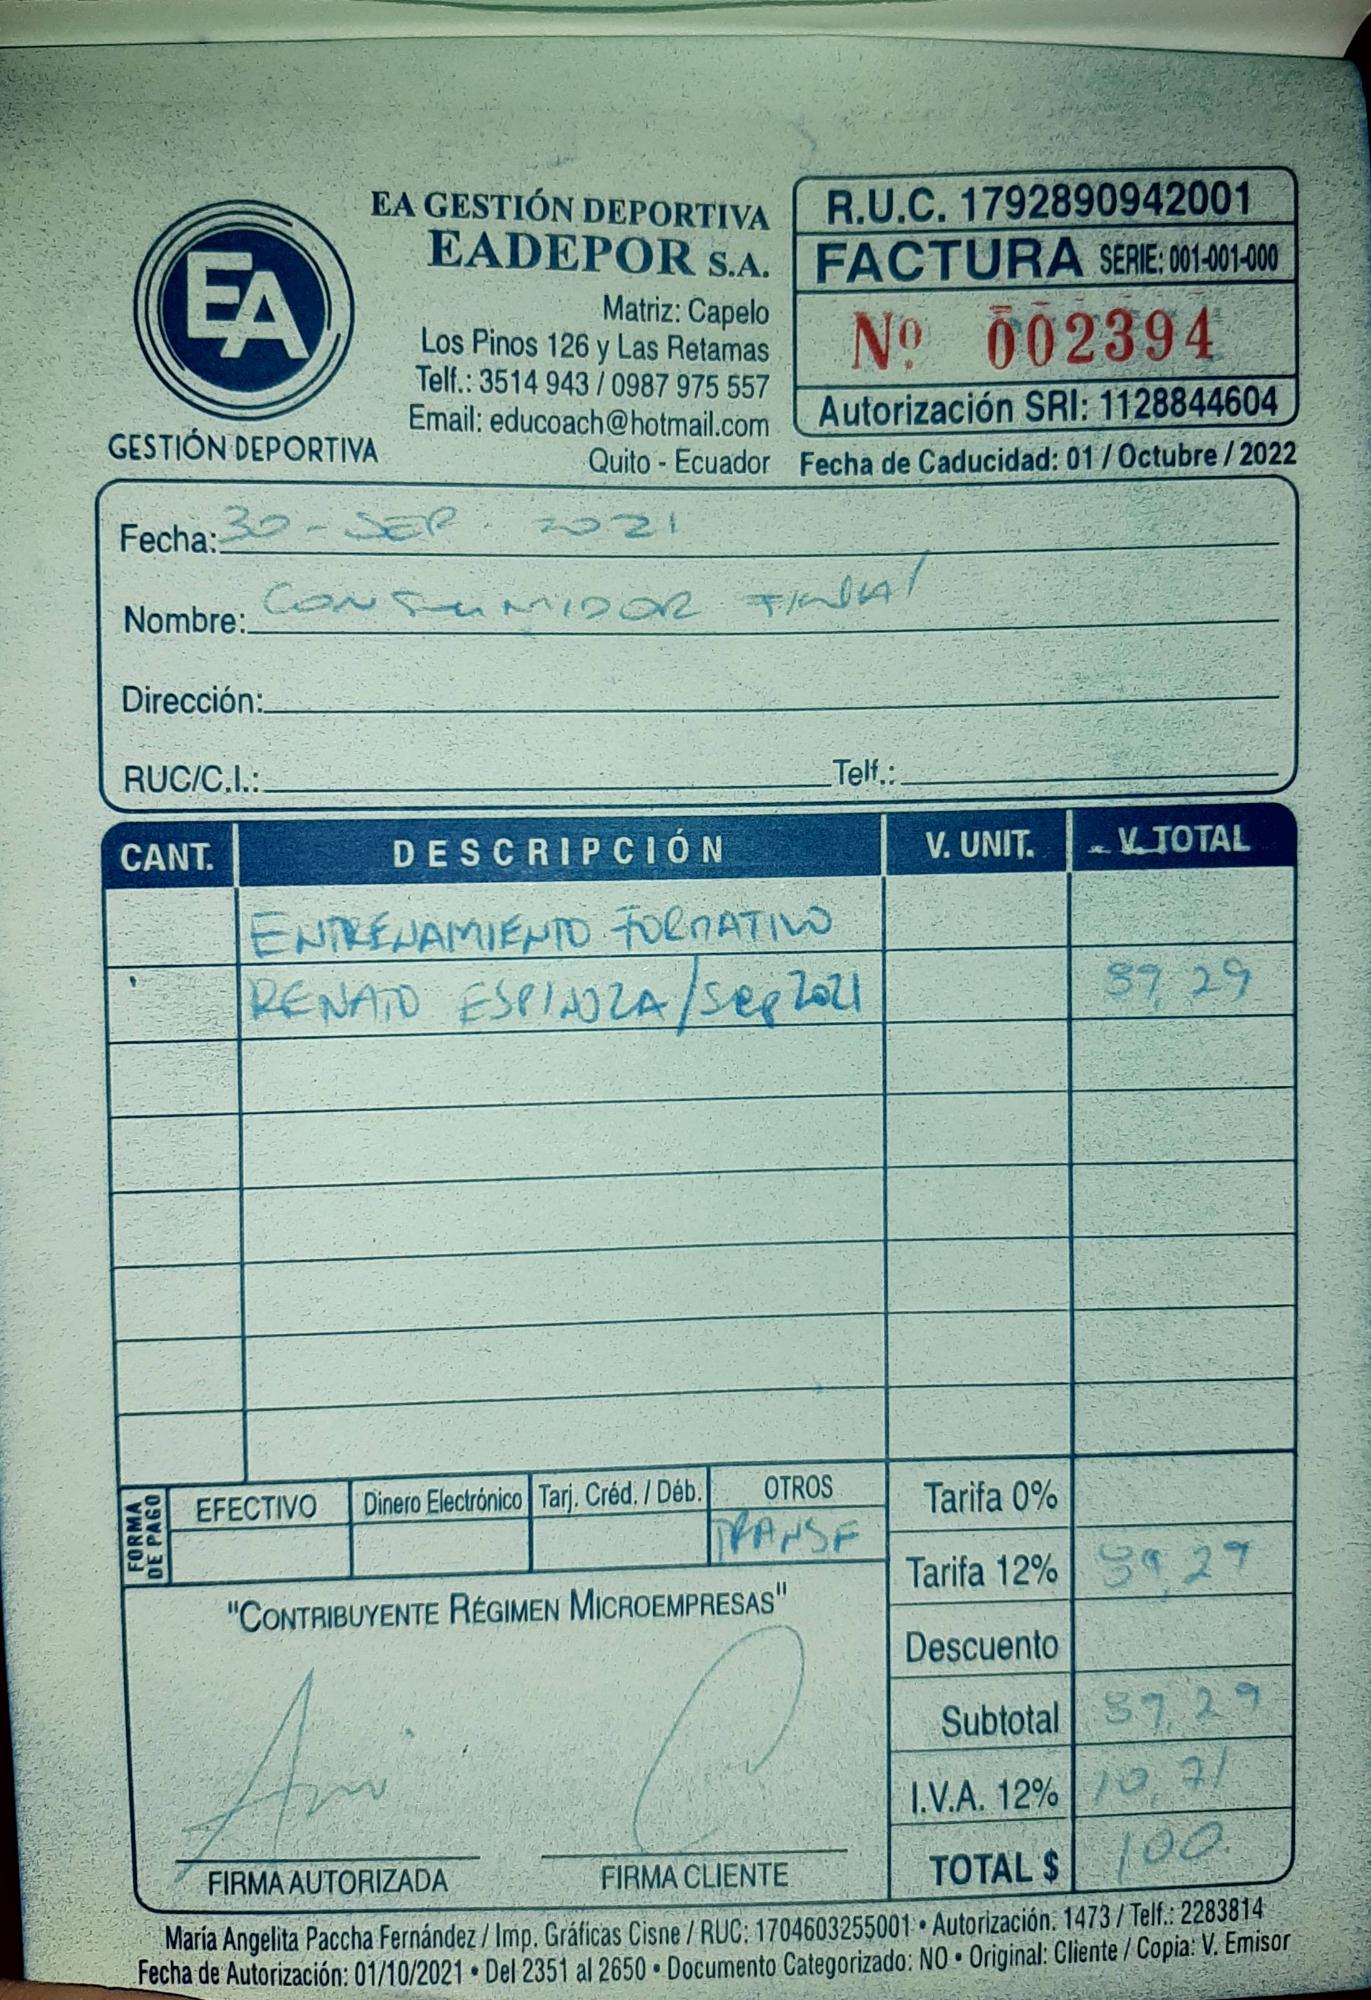 EA GESTIÓN DEPORTIVA
EADEPOR S.A.
Matriz: Capelo
Los Pinos 126 y Las Retamas
Telf.: 3514 943 / 0987 975 557
Email: educoach@hotmail.com
Quito - Ecuador
EA
GESTIÓN DEPORTIVA
R.U.C. 1792890942001
FACTURA SERIE: 001-001-000
Nº 002394
Autorización SRI: 1128844604
Fecha de Caducidad: 01 / Octubre / 2022
Fecha: 30 - SEP - 2021
Nombre: CONSUMIDOR FINAL
Dirección:
RUC/C.I.: Telf.:
CANT. DESCRIPCIÓN V. UNIT. V. TOTAL
ENTRENAMIENTO FORMATIVO
RENATO ESPINOZA/Sep 2021 89,29
FORMA DE PAGO
EFECTIVO Dinero Electrónico Tarj. Créd. / Déb. OTROS
TRANSF
Tarifa 0%
Tarifa 12% 89,29
Descuento
Subtotal 89,29
I.V.A. 12% 10,71
TOTAL $ 100.
"CONTRIBUYENTE RÉGIMEN MICROEMPRESAS"
FIRMA AUTORIZADA FIRMA CLIENTE
María Angelita Paccha Fernández / Imp. Gráficas Cisne / RUC: 1704603255001 • Autorización. 1473 / Telf.: 2283814
Fecha de Autorización: 01/10/2021 • Del 2351 al 2650 • Documento Categorizado: NO • Original: Cliente / Copia: V. Emisor